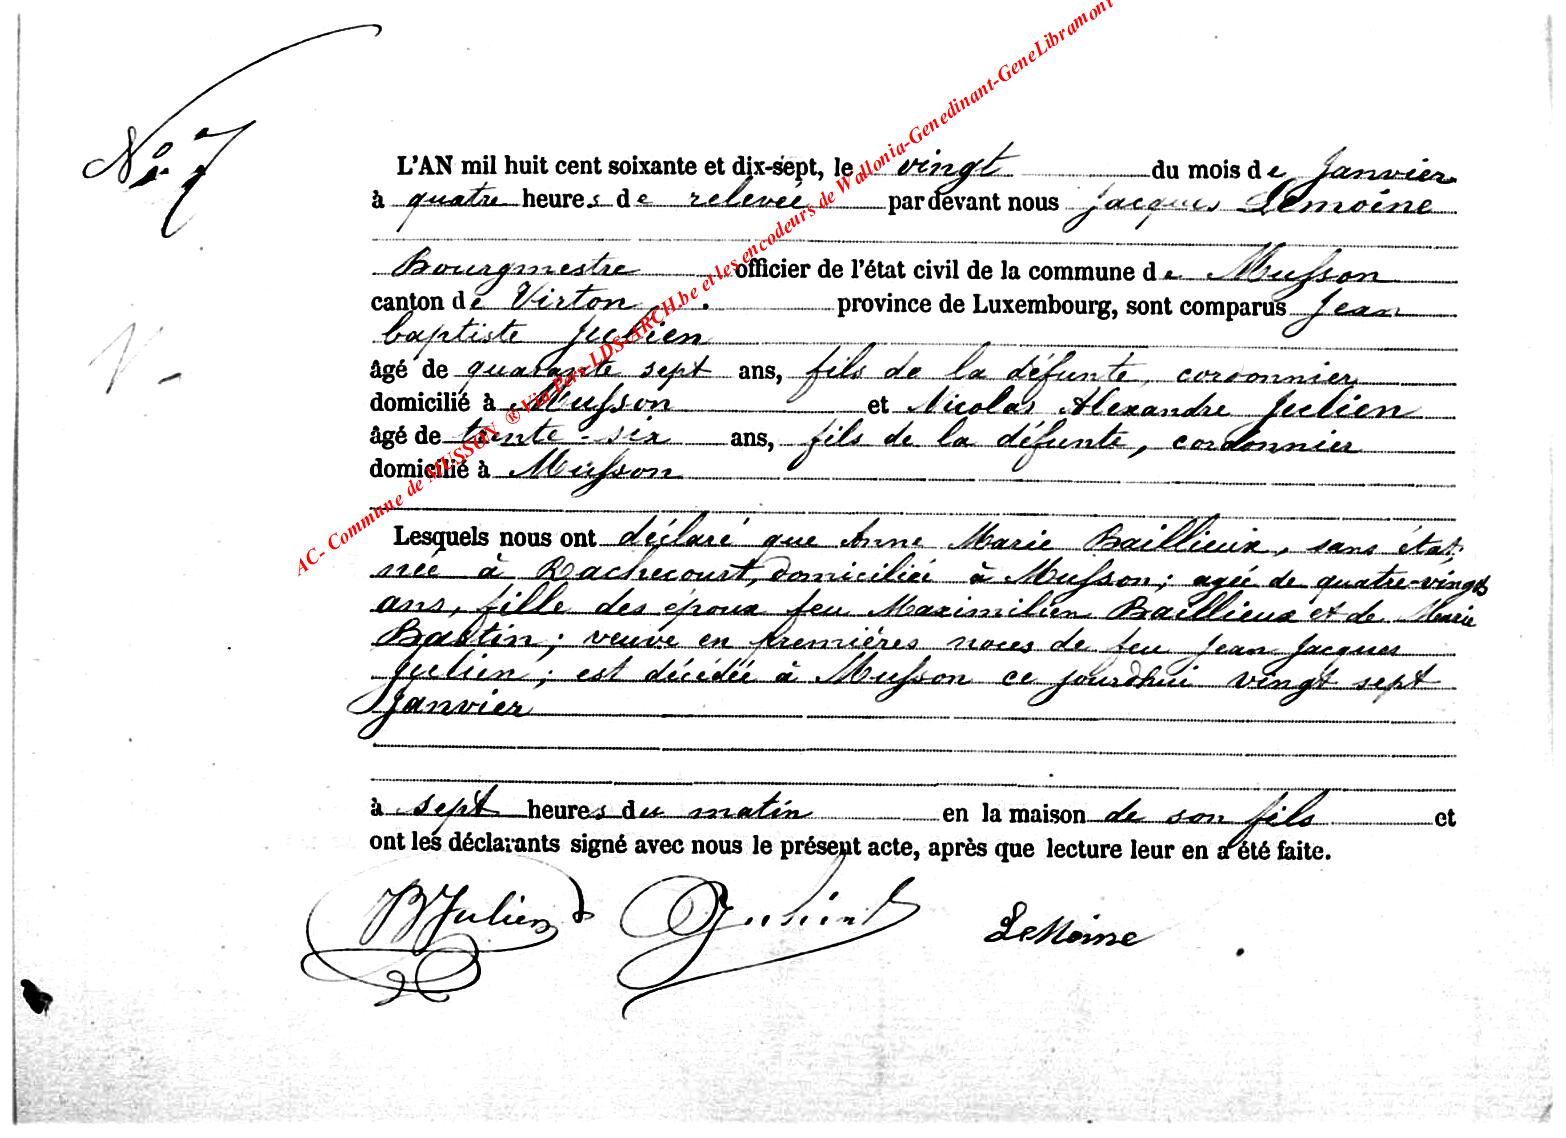 N° 7
L'AN mil huit cent soixante et dix-sept, le vingt du mois de Janvier
à quatre heures de relevée par devant nous Jacques Lemoine
Bourgmestre officier de l'état civil de la commune de Musson
canton de Virton province de Luxembourg, sont comparus Jean
baptiste Julien
âgé de quarante sept ans, fils de la défunte, cordonnier
domicilié à Musson et Nicolas Alexandre Julien
âgé de trente-six ans, fils de la défunte, cordonnier
domicilié à Musson
Lesquels nous ont déclaré que Anne Marie Baillieux, sans état,
née à Rachecourt, domiciliée à Musson; agée de quatre-vingts
ans, fille des époux feu Maximilien Baillieux et de Marie
Bastin; veuve en premières noces de feu Jean Jacques
Julien; est décédée à Musson ce jourdhui vingt sept
Janvier
à sept heures du matin en la maison de son fils et
ont les déclarants signé avec nous le présent acte, après que lecture leur en a été faite.
JBJulien Julien LeMoine
AC- Commune de MUSSON ® Via Pers-LDS-ARCH.be et les encodeurs de Wallonia-Genedinant-GeneLibramont